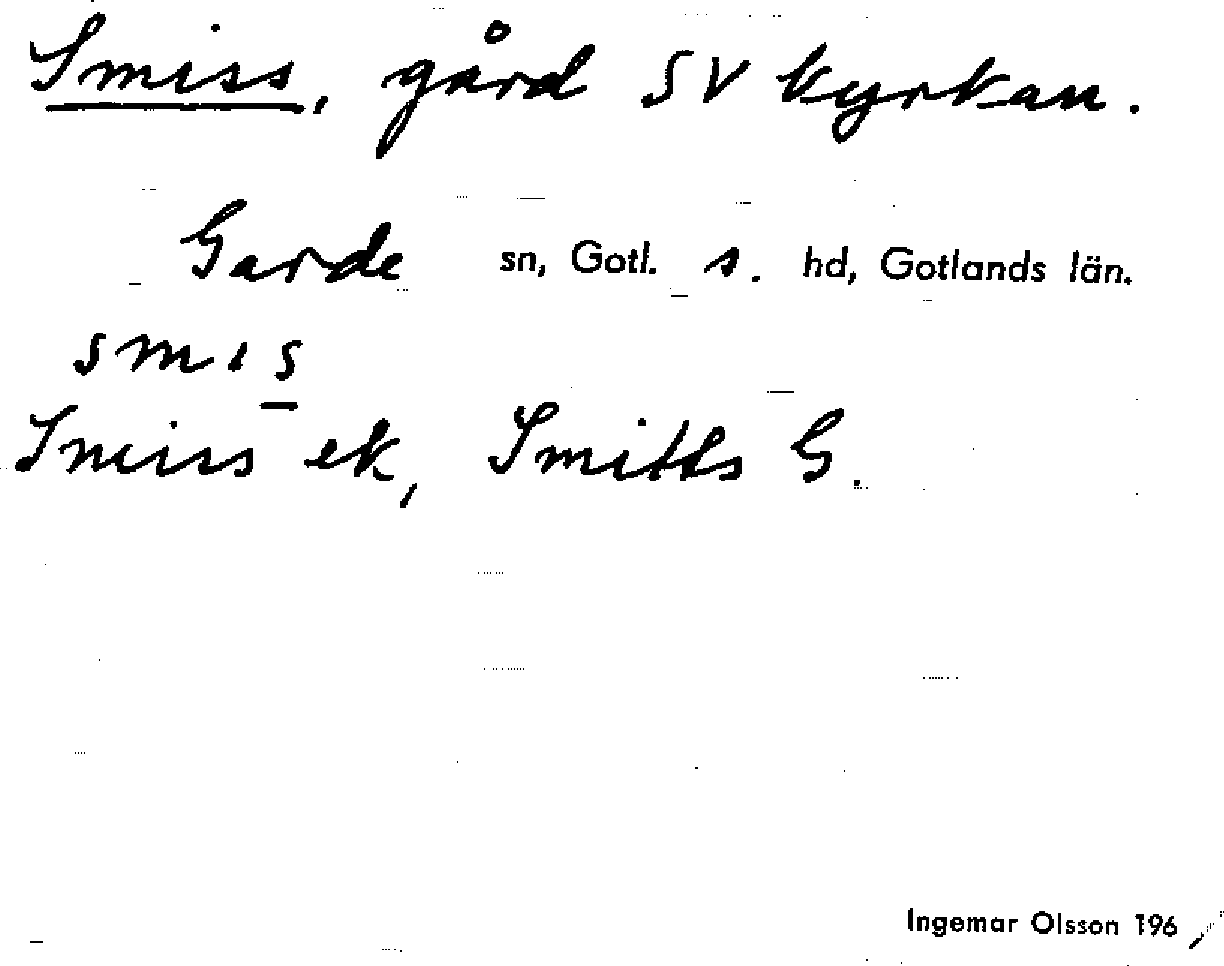 Smiss, gård SV kyrkan.
Garde sn, Gotl. s. hd, Gotlands län.
smıs
Smiss ek, Smitts G.
Ingemar Olsson 196